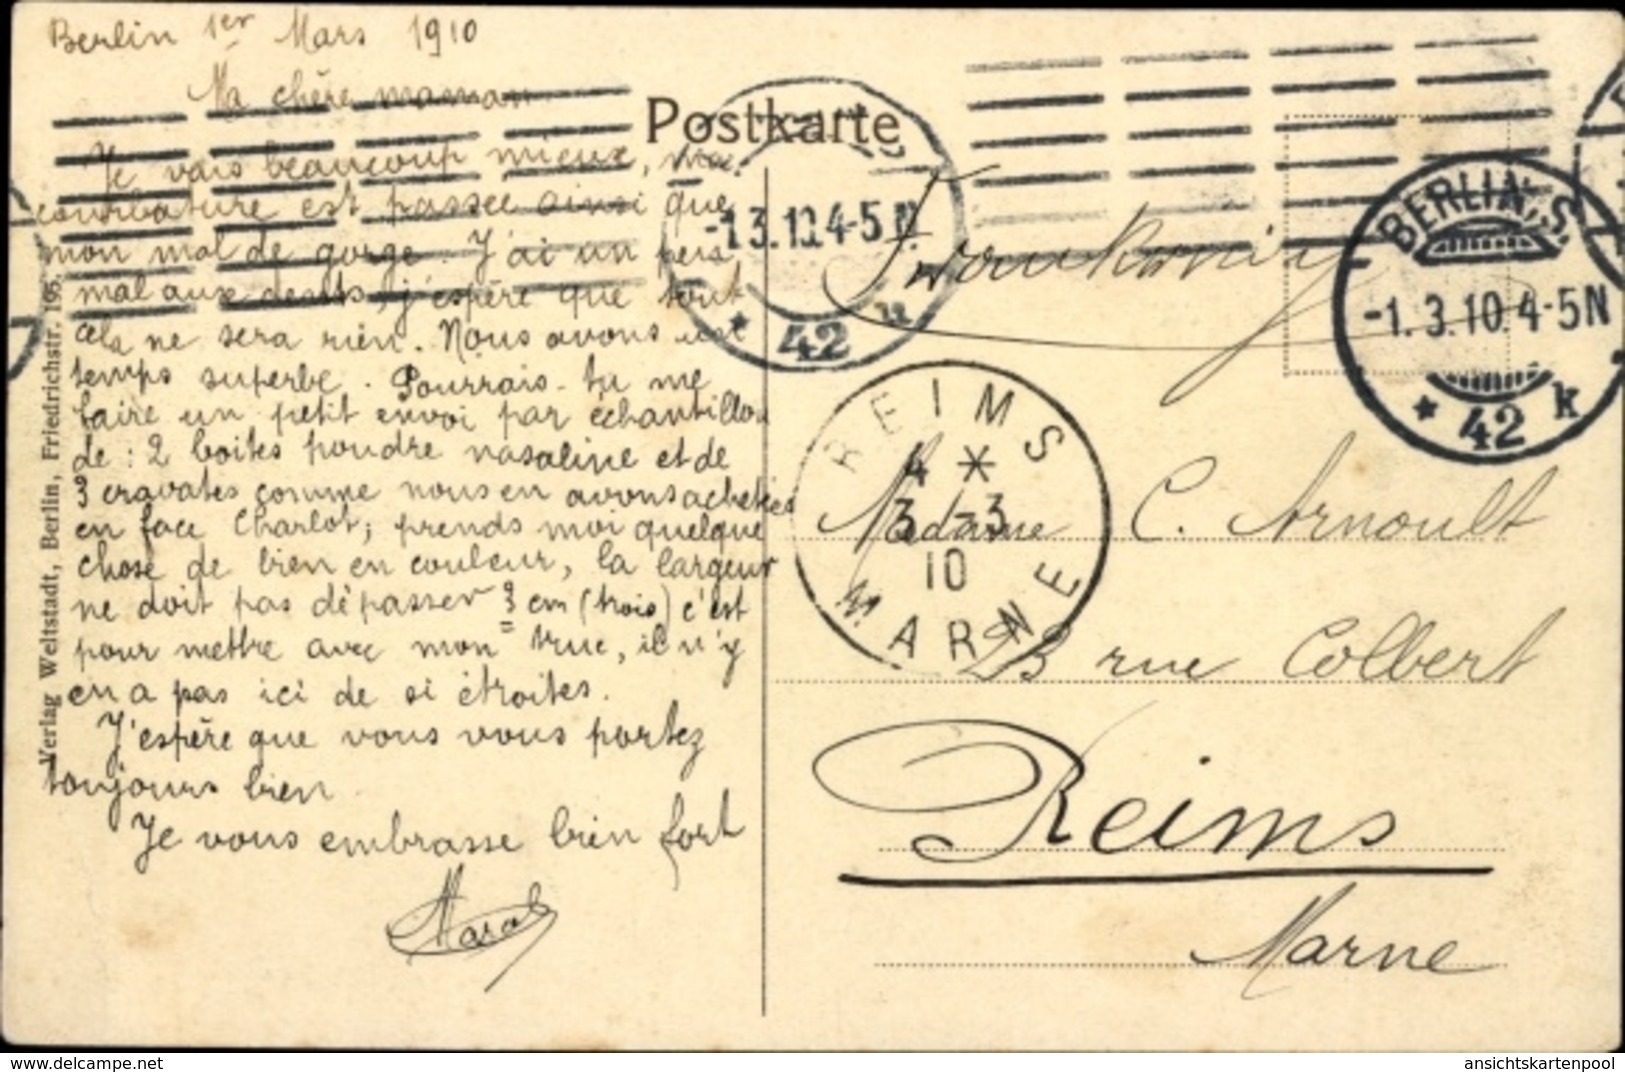 Berlin 1er Mars 1910
Ma chère maman
Je vais beaucoup mieux, ma
courbature est passée ainsi que
mon mal de gorge. J'ai un peu
mal aux dents, j'espère que tout
cela ne sera rien. Nous avons un
temps superbe. Pourrais-tu me
faire un petit envoi par échantillon
de : 2 boites poudre nasaline et de
3 cravates comme nous en avons achetées
en face Charlot; prends moi quelque
chose de bien en couleur, la largeur
ne doit pas dépasser 3 cm (trois) c'est
pour mettre avec mon truc, il n'y
en a pas ici de si étroites.
J'espère que vous vous portez
toujours bien
Je vous embrasse bien fort
Verlag Weltstadt, Berlin, Friedrichstr. 195.
Postkarte
-1.3.10.4-5N.
* 42
Frankreich
BERLIN, S.
-1.3.10.4-5N
* 42 k
REIMS
4 *
3 -3
10
MARNE
Madame C. Arnoult
23 rue Colbert
Reims
Marne
www.delcampe.net
ansichtskartenpool